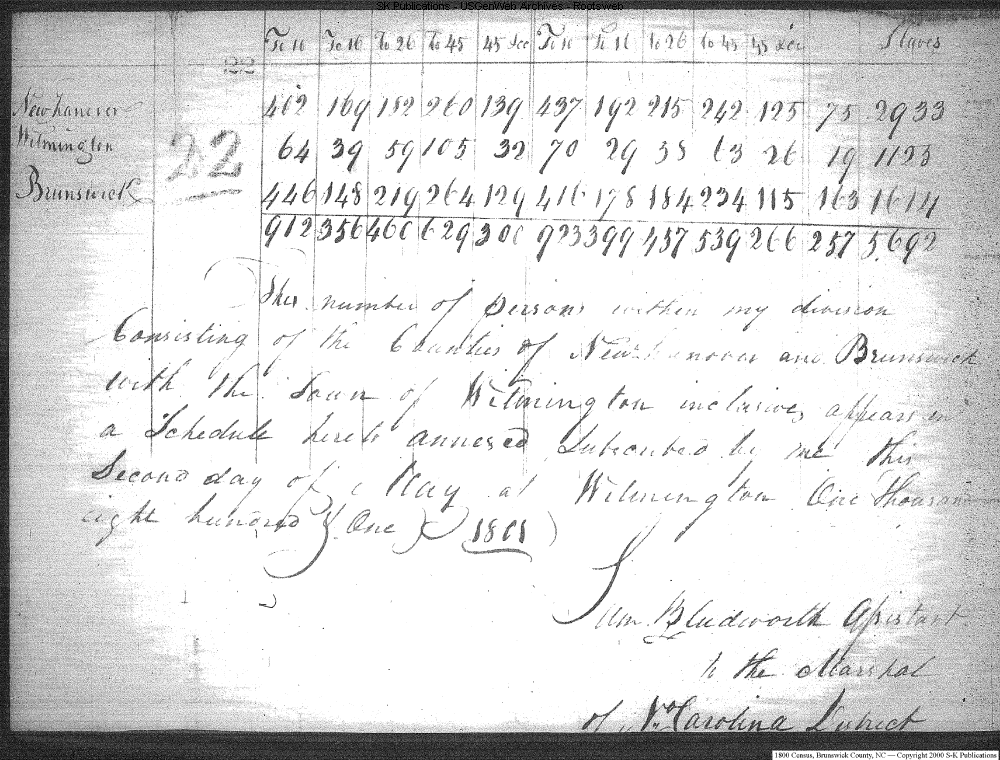 SK Publications - USGenWeb Archives - Rootsweb
To 10 To 16 To 26 To 45 45 &c To 10 To 16 to 26 to 45 45 &c Slaves
22
New hanover 402 169 182 260 139 437 192 215 242 125 75 2933
Wilmington 64 39 59 105 32 70 29 38 63 26 19 1123
22
Brunswick 446 148 219 264 129 416 178 184 234 115 163 1614
912 356 460 629 300 923 399 437 539 266 257 5,692
The number of persons within my division
Consisting of the Counties of New hanover and Brunswick
with the Town of Wilmington inclusive, appears in
a Schedule hereto annexed Subscribed by me this
Second day of May at Wilmington One Thousand
eight hundred & One (1801)
Sam Bludworth Assistant
to the Marshal
of No Carolina District
1800 Census, Brunswick County, NC — Copyright 2000 S-K Publications